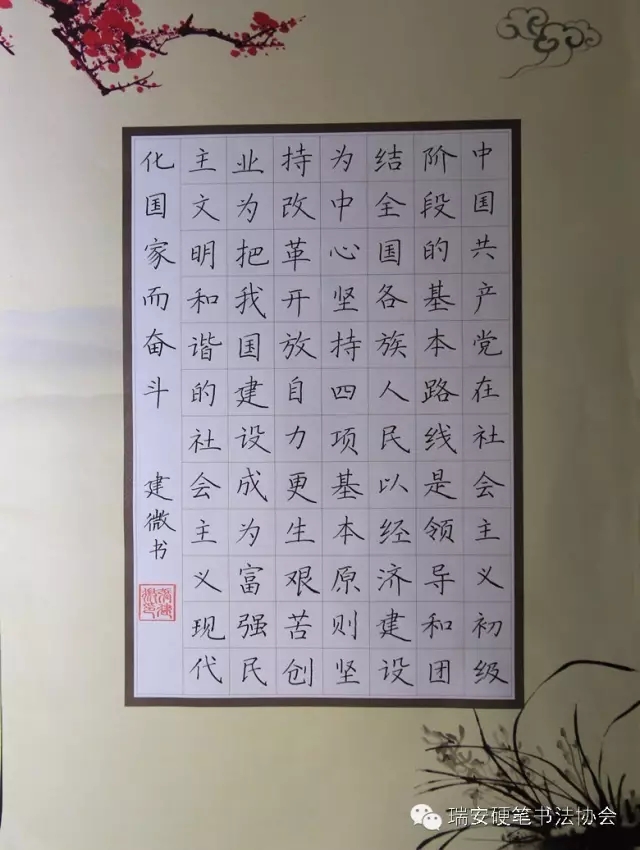 中国共产党在社会主义初级
阶段的基本路线是领导和团
结全国各族人民以经济建设
为中心坚持四项基本原则坚
持改革开放自力更生艰苦创
业为把我国建设成为富强民
主文明和谐的社会主义现代
化国家而奋斗
建微书
瑞安硬笔书法协会